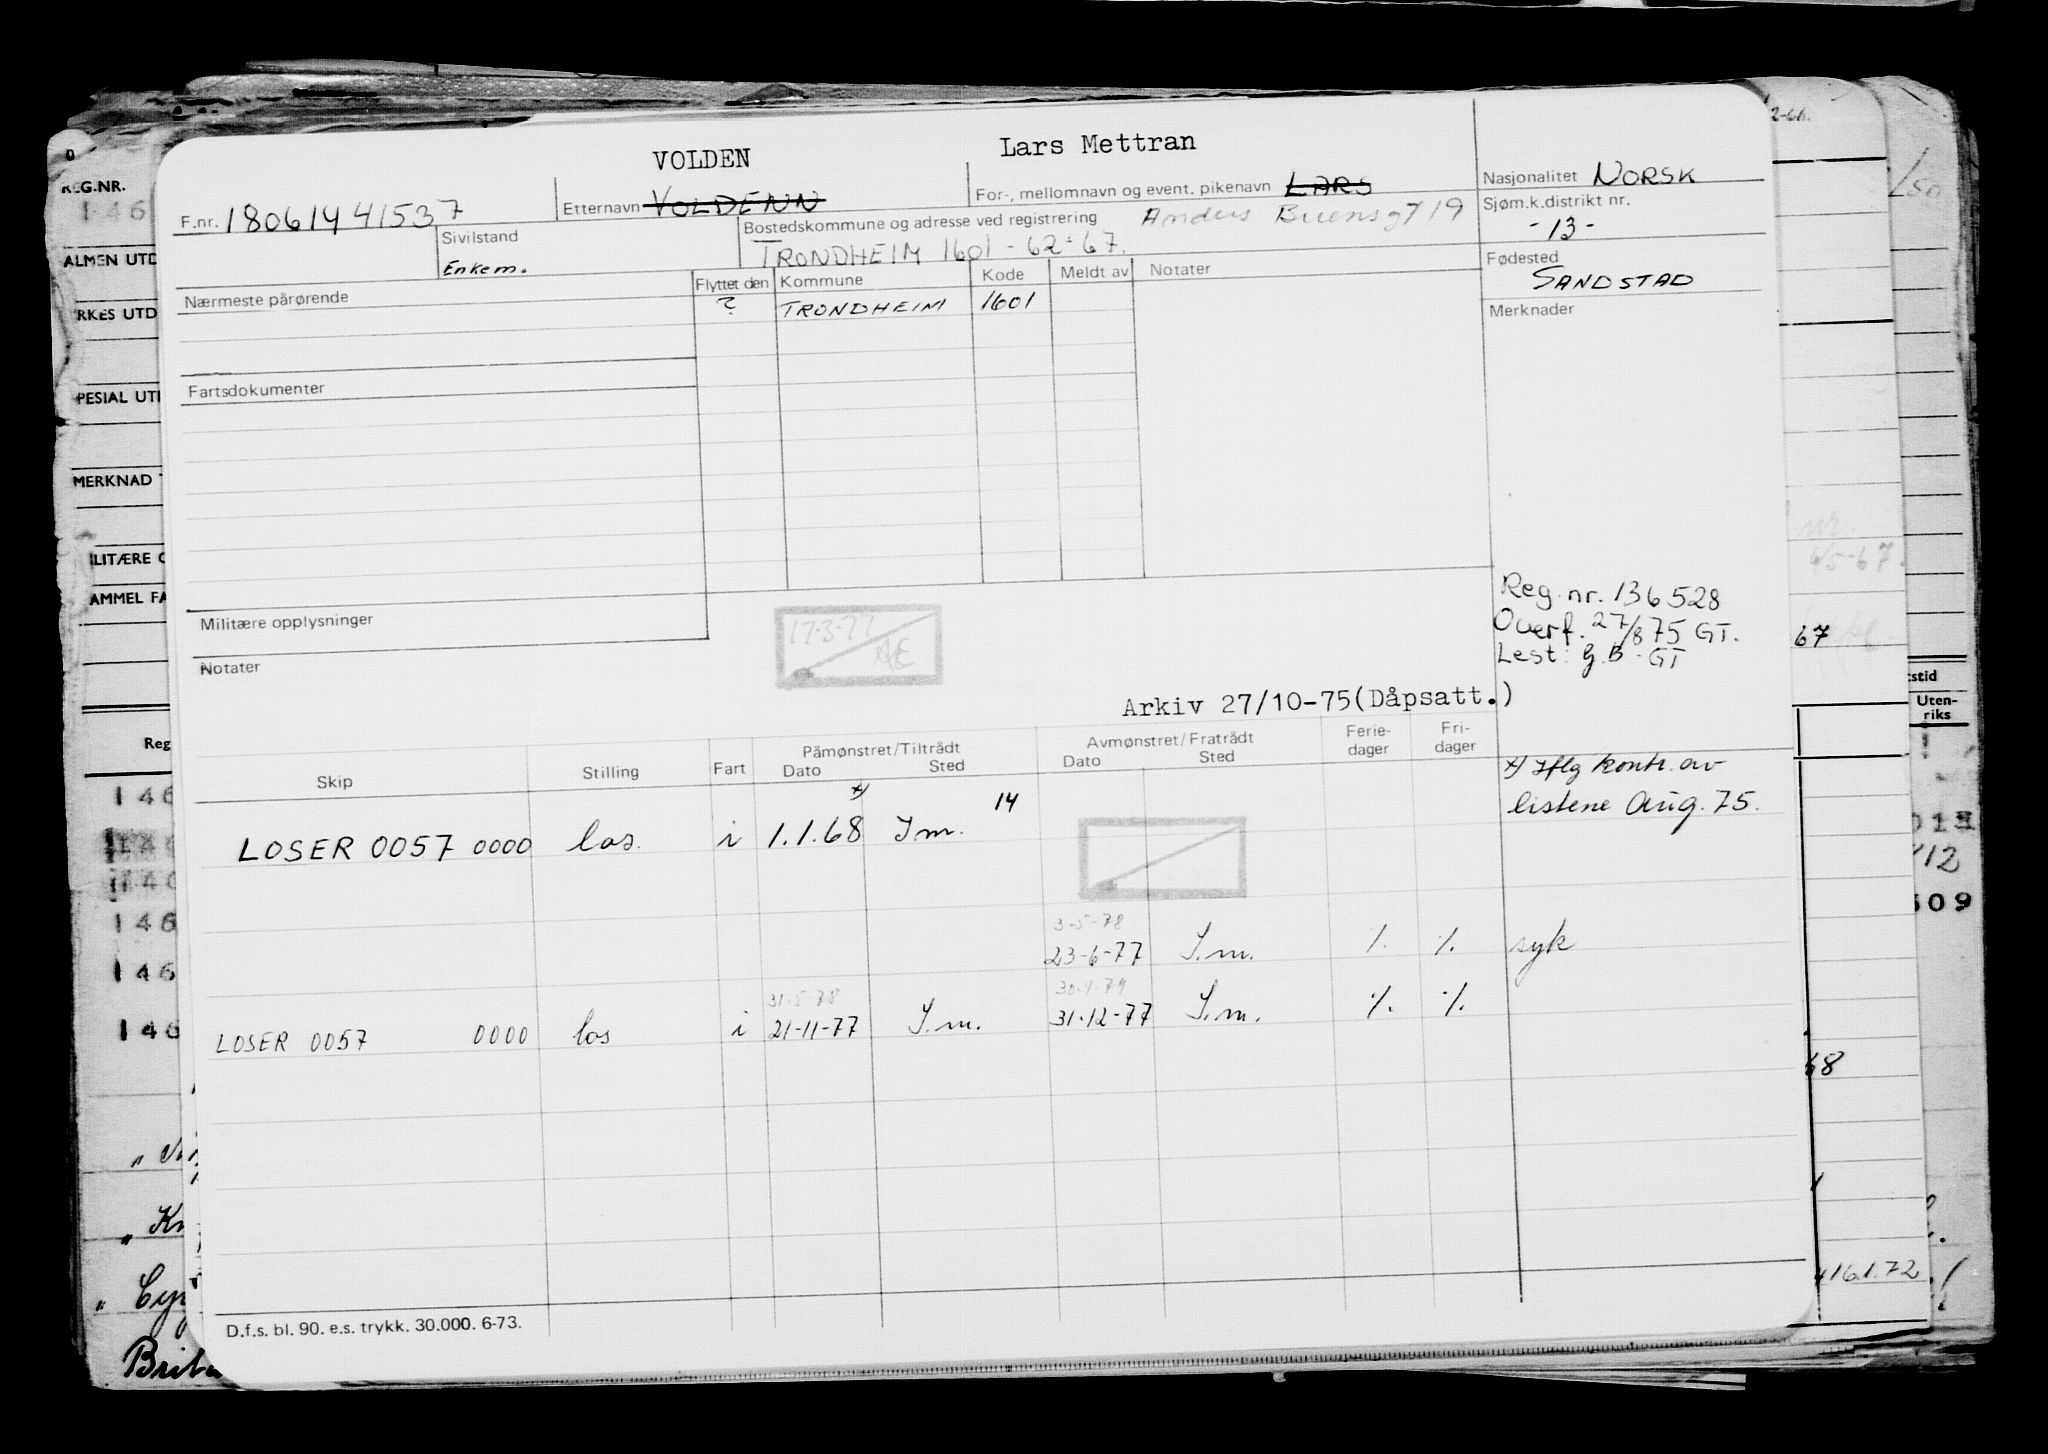 VOLDEN Lars Mettran
F.nr. 18061441537 Etternavn VOLDENN For-, mellomnavn og event. pikenavn LARS Nasjonalitet NORSK
Sivilstand Enkem. Bostedskommune og adresse ved registrering Anders Buensgt 19
TRONDHEIM 1601 - 62 - 67.
Sjøm.k.distrikt nr. -13-
Fødested SANDSTAD
Nærmeste pårørende Flyttet den Kommune Kode Meldt av Notater
? TRONDHEIM 1601
Merknader
Fartsdokumenter
Reg. nr. 136528
Overf. 27/8 75 GT.
Lest: G.B - GT
Militære opplysninger
17-3-77
Notater
Arkiv 27/10-75(Dåpsatt.)
Skip Stilling Fart Påmønstret/Tiltrådt Dato Sted Avmønstret/Fratrådt Dato Sted Ferie-dager Fri-dager
x) Iflg kontr. av
listene Aug. 75.
x) 14
LOSER 0057 0000 los. i 1.1.68 I m.
3-5-78
23-6-77 I.m. ./. ./. syk
31-5-78 30.4.79
LOSER 0057 0000 los i 21-11-77 I.m. 31-12-77 I.m. ./. ./.
D.f.s. bl. 90. e.s. trykk. 30.000. 6-73.
REG.NR.
146
ALMEN UTD
RKES UTD
PESIAL UT
MERKNAD
ILITÆRE
AMMEL FA
Reg
146
146
146
146
Brit
2-66.
45-67
67
Uten-
riks
12
509
68
16.1.72